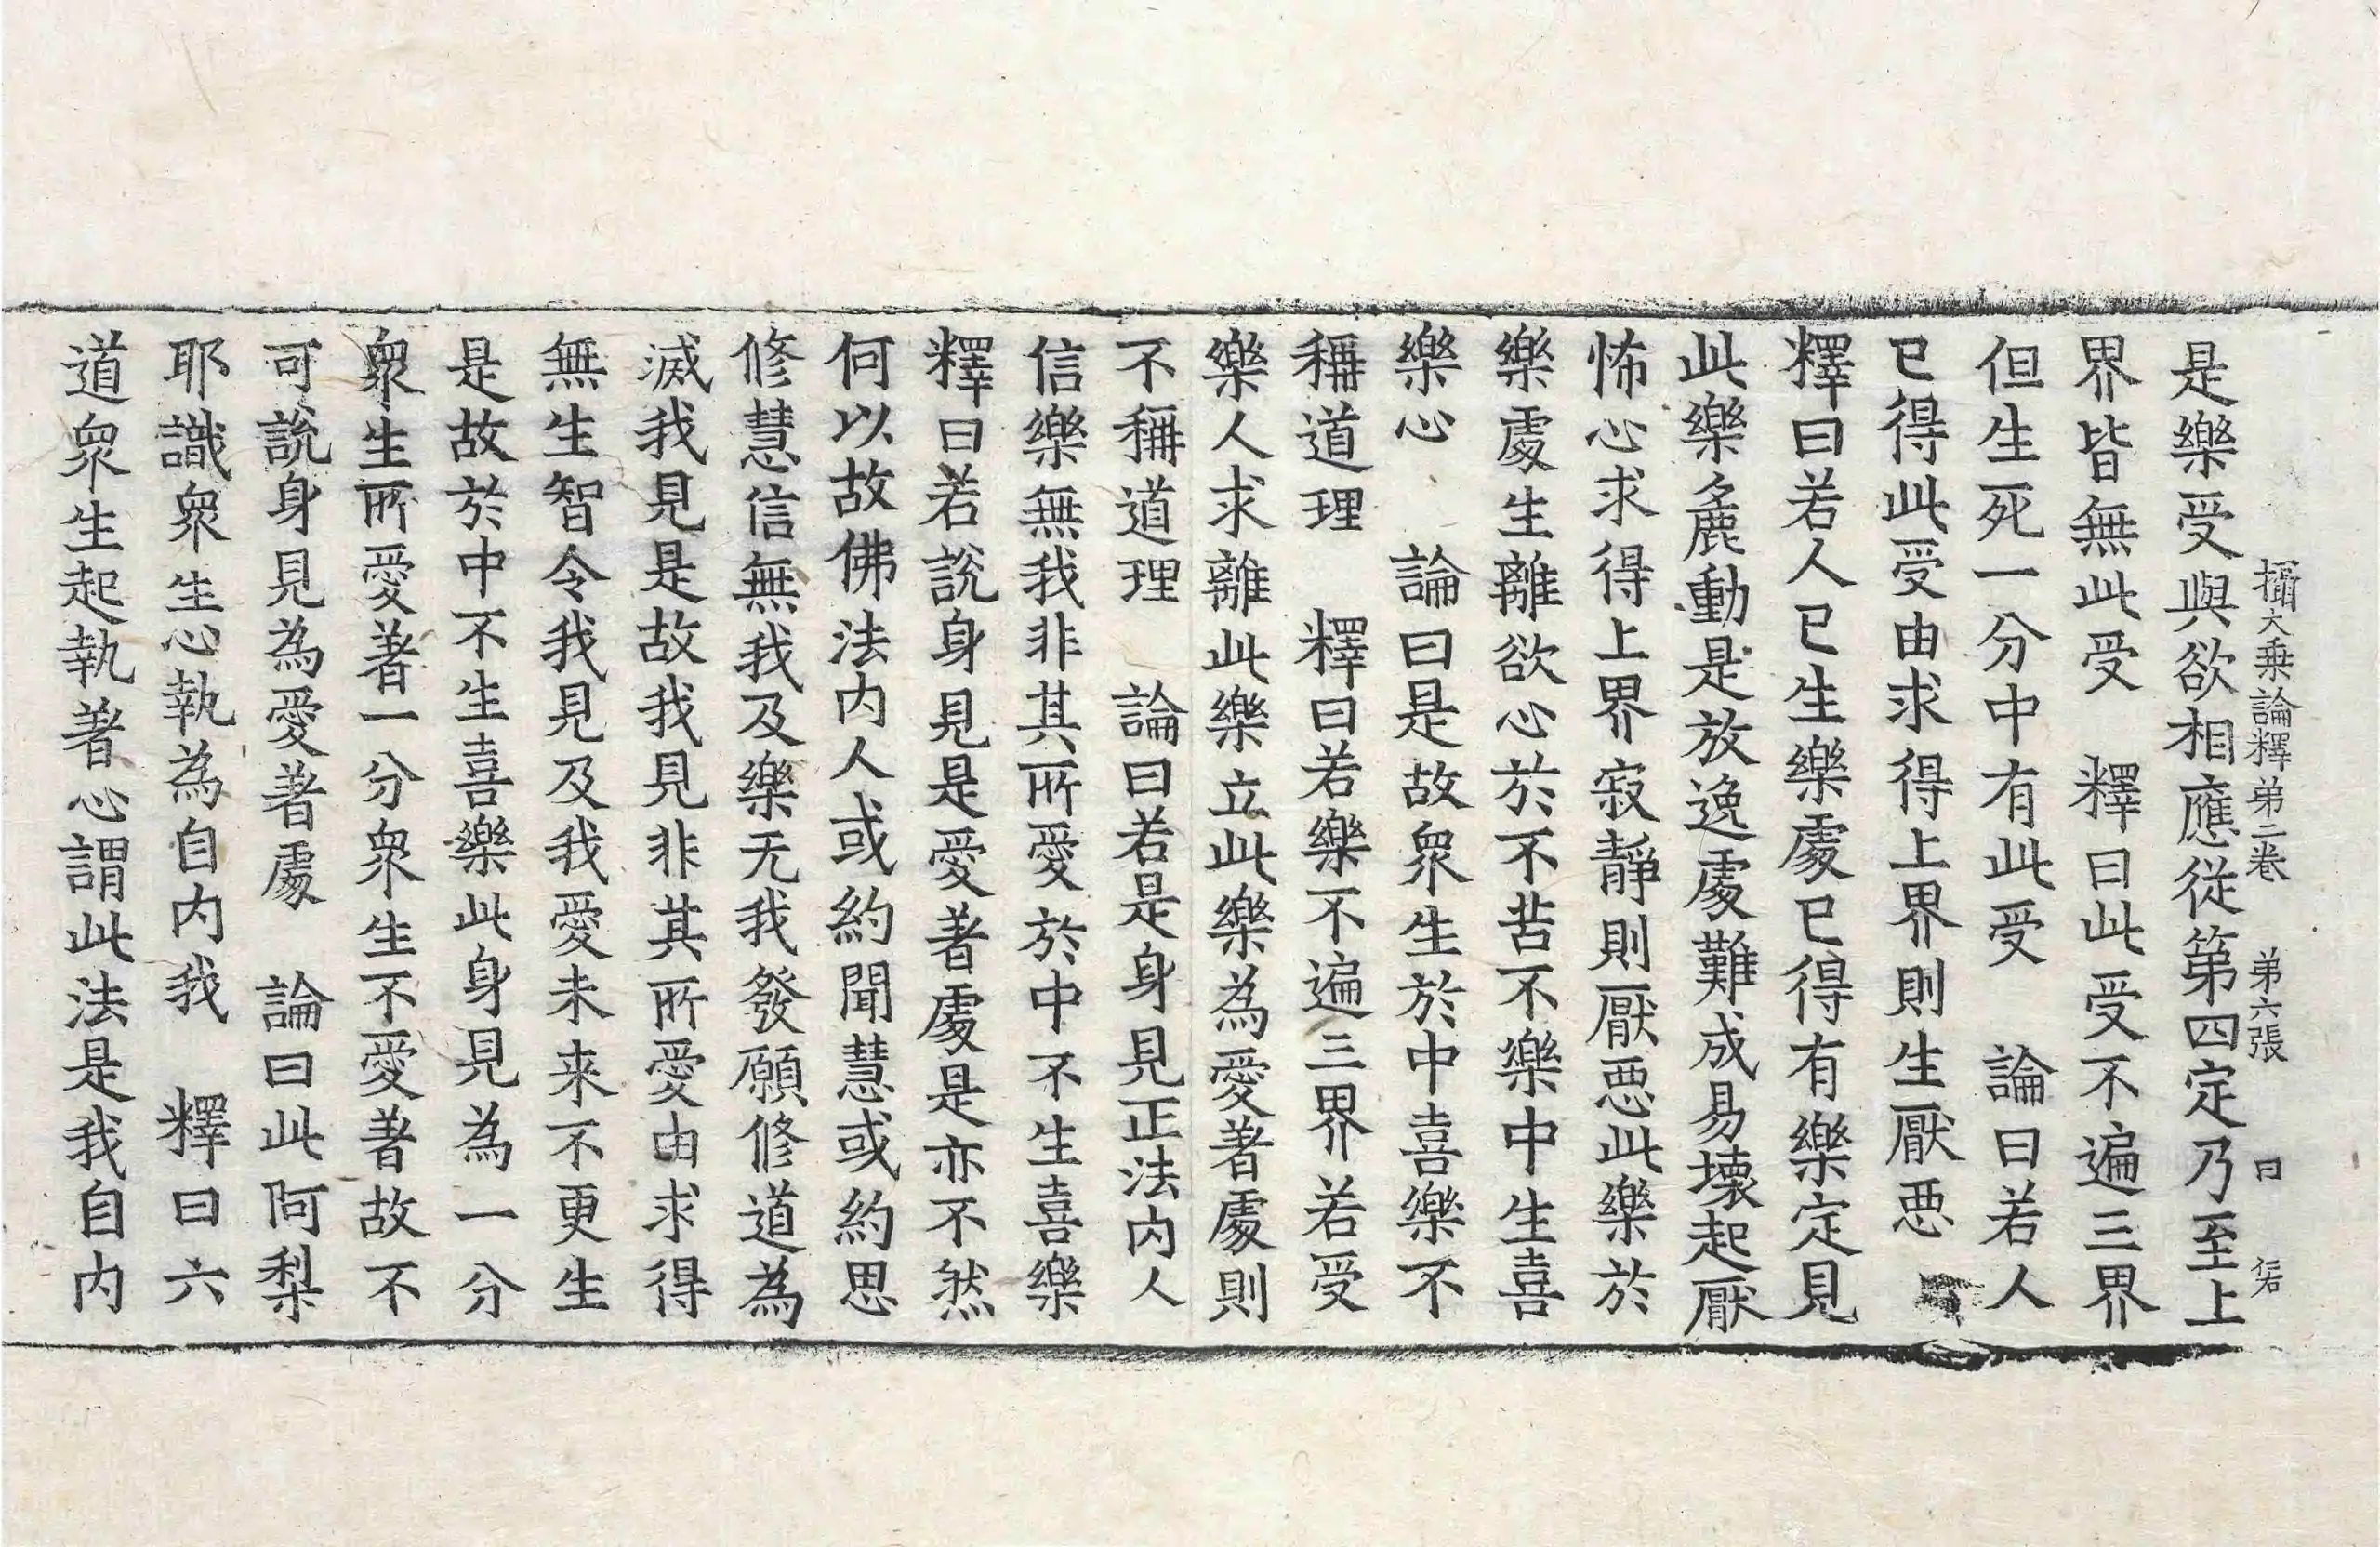 攝大乗論釋弟二卷 弟六張 曰
是樂受與欲相應從第四定乃至上
界皆無此受 釋曰此受不遍三界
但生死一分中有此受 論曰若人
已得此受由求得上界則生厭惡
釋曰若人已生樂處已得有樂定見
此樂麁動是放逸處難成易壊起厭
怖心求得上界寂靜則厭惡此樂於
樂處生離欲心於不苦不樂中生喜
樂心 論曰是故衆生於中喜樂不
稱道理 釋曰若樂不遍三界若受
樂人求離此樂立此樂為愛著處則
不稱道理 論曰若是身見正法内人
信樂無我非其所愛於中不生喜樂
釋曰若說身見是愛著處是亦不然
何以故佛法内人或約聞慧或約思
修慧信無我及樂无我發願修道為
滅我見是故我見非其所愛由求得
無生智令我見及我愛未来不更生
是故於中不生喜樂此身見為一分
衆生所愛著一分衆生不愛著故不
可說身見為愛著處 論曰此阿梨
耶識衆生心執為自内我 釋曰六
道衆生起執著心謂此法是我自内